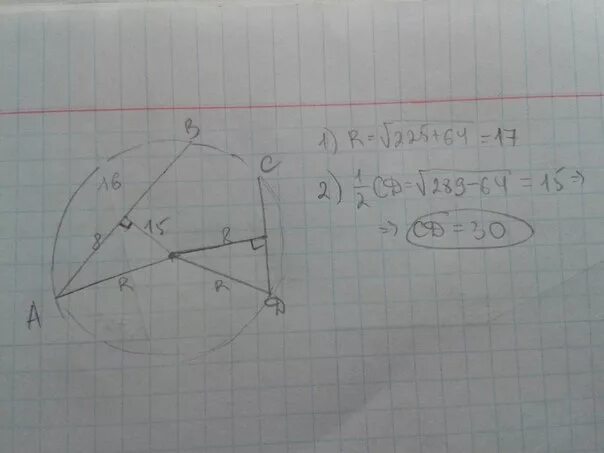 B
C
16
8
15
8
R
R
A
D
1) R = √225+64 = 17
2) 1/2 CD = √289-64 = 15 ⇒
⇒ CD = 30